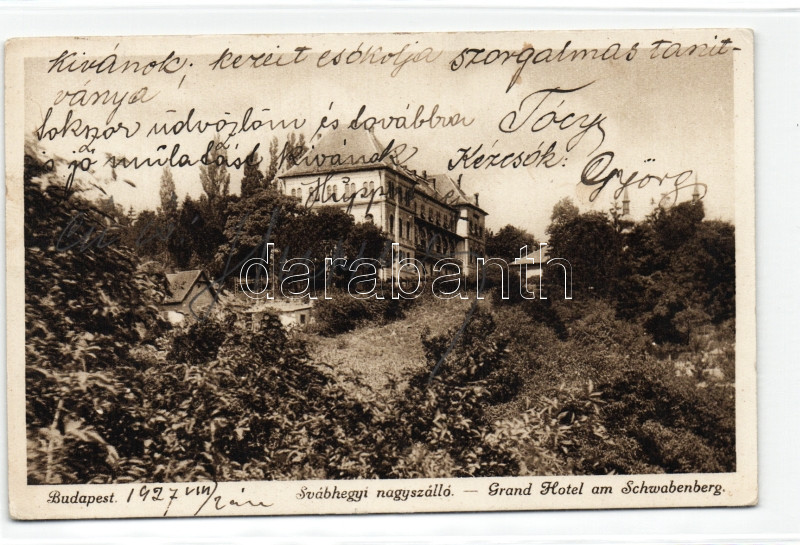 Kivánok; kezeit csókolja szorgalmas tanit-
ványa
Tóczy
Sokszor üdvözlöm és továbbra
is jó mulatást kivánok Kézcsók:
György
darabanth
Budapest. 1927 VIII/
Svábhegyi nagyszálló. — Grand Hotel am Schwabenberg.